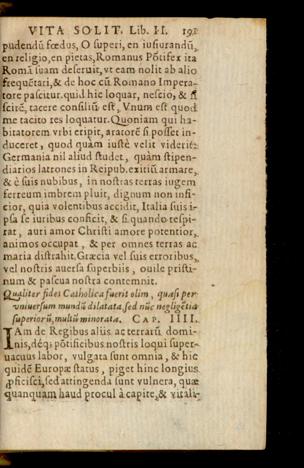 VITA SOLIT. Lib. II. 191
pudendū fœdus, O superi, en iusiurandū,
en religio, en pietas, Romanus Pōtifex ita
Romā suam deseruit, vt eam nolit ab alio
frequētari, & de hoc cū Romano Impera-
tore paciscitur. quid hic loquar, nescio, &
scirē, tacere consiliū est, Vnum est quod
me tacito res loquatur. Quoniam qui ha-
bitatorem vrbi eripit, aratorē si posset in-
duceret, quod quàm iustè velit viderit:
Germania nil aliud studet, quàm stipen-
diarios latrones in Reipub. exitiū armare,
& è suis nubibus, in nostras terras iugem
ferreum imbrem pluit, dignum non infi-
cior, quia volentibus accidit, Italia suis i-
psa se iuribus conficit, & si quando respi-
rat, auri amor Christi amore potentior,
animos occupat, & per omnes terras ac
maria distrahit. Græcia vel suis erroribus,
vel nostris auersa superbiis, ouile pristi-
num & pascua nostra contemnit.
Qualiter fides Catholica fuerit olim, quasi per
vniuersum mundū dilatata, sed nūc negligētia
superiorū, multū minorata. CAP. IIII.
IAm de Regibus aliis ac terrarū domi-
nis, déq; pōtificibus nostris loqui super-
uacuus labor, vulgata sunt omnia, & hic
quidē Europæ status, piget hinc longius
ꝓficisci, sed attingenda sunt vulnera, quæ
quanquam haud procul à capite, & vitali-